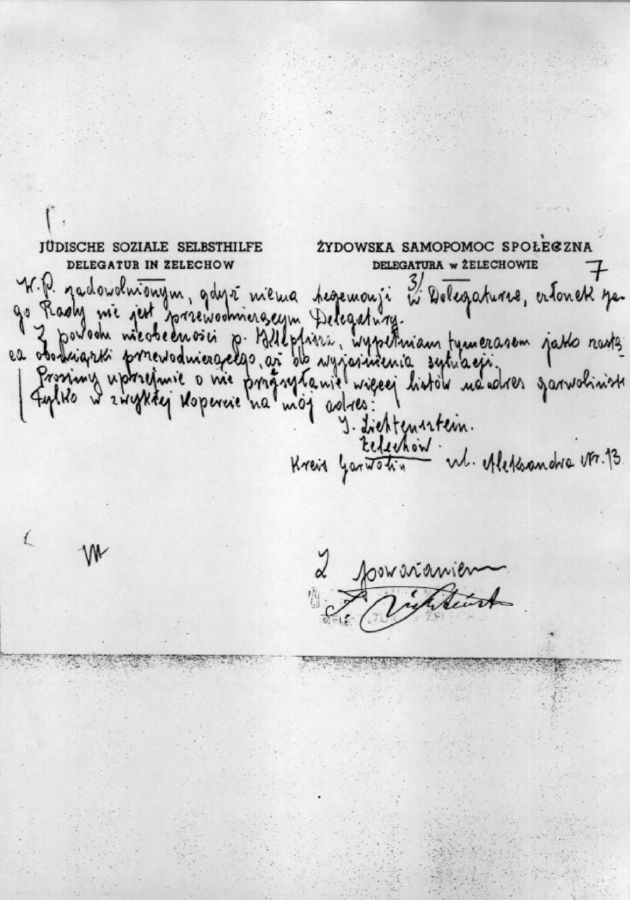 JÜDISCHE SOZIALE SELBSTHILFE
DELEGATUR IN ZELECHOW
ŻYDOWSKA SAMOPOMOC SPOŁECZNA
DELEGATURA w ŻELECHOWIE
3/
7
W.P. zadowolnionym, gdyż niema hegemonji w Delegaturze, członek
go Rady nie jest przewodniczącym Delegatury.
Z powodu nieobecności p. wypełniam tymczasem jako zastę
ca obowiązki przewodniczącego, aż do wyjaśnienia sytuacji.
Prosimy uprzejmie o nie przysyłanie więcej listów na adres garwoliński
tylko w zwykłej kopercie na mój adres:
J. Lichtensztein.
Żelechów.
Kreis Garwolin ul. Aleksandra Nr. 13
Z poważaniem